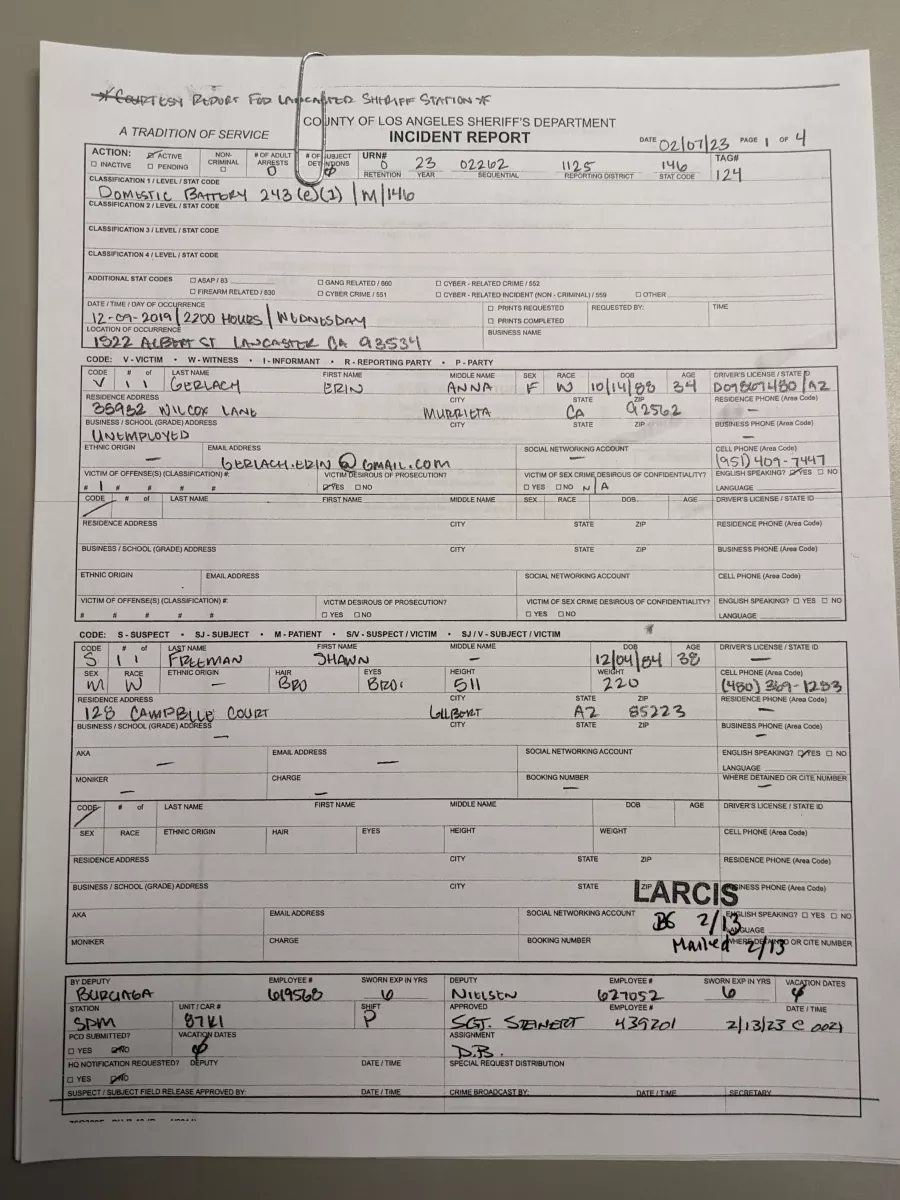 *COURTESY REPORT FOR LANCASTER SHERIFF STATION*
COUNTY OF LOS ANGELES SHERIFF'S DEPARTMENT
A TRADITION OF SERVICE INCIDENT REPORT DATE 02/07/23 PAGE 1 OF 4
ACTION: ☑ ACTIVE NON-CRIMINAL # OF ADULT ARRESTS # OF SUBJECT DETENTIONS URN# TAG#
☐ INACTIVE ☐ PENDING ☐ 0 0 0 23 02262 1125 146 124
RETENTION YEAR SEQUENTIAL REPORTING DISTRICT STAT CODE
CLASSIFICATION 1 / LEVEL / STAT CODE
DOMESTIC BATTERY 243(e)(1) / M / 146
CLASSIFICATION 2 / LEVEL / STAT CODE
CLASSIFICATION 3 / LEVEL / STAT CODE
CLASSIFICATION 4 / LEVEL / STAT CODE
ADDITIONAL STAT CODES ☐ ASAP / 83 ☐ GANG RELATED / 860 ☐ CYBER - RELATED CRIME / 552
☐ FIREARM RELATED / 830 ☐ CYBER CRIME / 551 ☐ CYBER - RELATED INCIDENT (NON - CRIMINAL) / 559 ☐ OTHER
DATE / TIME / DAY OF OCCURRENCE ☐ PRINTS REQUESTED REQUESTED BY: TIME
12-09-2019 / 2200 HOURS / WEDNESDAY ☐ PRINTS COMPLETED
LOCATION OF OCCURRENCE BUSINESS NAME
1522 ALBERT ST LANCASTER CA 93534
CODE: V - VICTIM • W - WITNESS • I - INFORMANT • R - REPORTING PARTY • P - PARTY
CODE # of LAST NAME FIRST NAME MIDDLE NAME SEX RACE DOB AGE DRIVER'S LICENSE / STATE ID
V 1 1 GERLACH ERIN ANNA F W 10/14/88 34 D09867480 / AZ
RESIDENCE ADDRESS CITY STATE ZIP RESIDENCE PHONE (Area Code)
35932 WILCOX LANE MURRIETA CA 92562 —
BUSINESS / SCHOOL (GRADE) ADDRESS CITY STATE ZIP BUSINESS PHONE (Area Code)
UNEMPLOYED —
ETHNIC ORIGIN EMAIL ADDRESS SOCIAL NETWORKING ACCOUNT CELL PHONE (Area Code)
— GERLACH.ERIN@GMAIL.COM — (951) 409-7447
VICTIM OF OFFENSE(S) (CLASSIFICATION) #: VICTIM DESIROUS OF PROSECUTION? VICTIM OF SEX CRIME DESIROUS OF CONFIDENTIALITY? ENGLISH SPEAKING? ☑ YES ☐ NO
# 1 # # # # ☑ YES ☐ NO ☐ YES ☐ NO N/A LANGUAGE
CODE # of LAST NAME FIRST NAME MIDDLE NAME SEX RACE DOB AGE DRIVER'S LICENSE / STATE ID
RESIDENCE ADDRESS CITY STATE ZIP RESIDENCE PHONE (Area Code)
BUSINESS / SCHOOL (GRADE) ADDRESS CITY STATE ZIP BUSINESS PHONE (Area Code)
ETHNIC ORIGIN EMAIL ADDRESS SOCIAL NETWORKING ACCOUNT CELL PHONE (Area Code)
VICTIM OF OFFENSE(S) (CLASSIFICATION) #: VICTIM DESIROUS OF PROSECUTION? VICTIM OF SEX CRIME DESIROUS OF CONFIDENTIALITY? ENGLISH SPEAKING? ☐ YES ☐ NO
# # # # # ☐ YES ☐ NO ☐ YES ☐ NO LANGUAGE
CODE: S - SUSPECT • SJ - SUBJECT • M - PATIENT • S/V - SUSPECT / VICTIM • SJ / V - SUBJECT / VICTIM
CODE # of LAST NAME FIRST NAME MIDDLE NAME DOB AGE DRIVER'S LICENSE / STATE ID
S 1 1 FREEMAN SHAWN — 12/04/84 38 —
SEX RACE ETHNIC ORIGIN HAIR EYES HEIGHT WEIGHT CELL PHONE (Area Code)
M W — BRO BRO 511 220 (480) 369-1253
RESIDENCE ADDRESS CITY STATE ZIP RESIDENCE PHONE (Area Code)
128 CAMPBLLE COURT GILBERT AZ 85223 —
BUSINESS / SCHOOL (GRADE) ADDRESS CITY STATE ZIP BUSINESS PHONE (Area Code)
— —
AKA EMAIL ADDRESS SOCIAL NETWORKING ACCOUNT ENGLISH SPEAKING? ☑ YES ☐ NO
— — LANGUAGE
MONIKER CHARGE BOOKING NUMBER WHERE DETAINED OR CITE NUMBER
— — — —
CODE # of LAST NAME FIRST NAME MIDDLE NAME DOB AGE DRIVER'S LICENSE / STATE ID
SEX RACE ETHNIC ORIGIN HAIR EYES HEIGHT WEIGHT CELL PHONE (Area Code)
RESIDENCE ADDRESS CITY STATE ZIP RESIDENCE PHONE (Area Code)
BUSINESS / SCHOOL (GRADE) ADDRESS CITY STATE ZIP BUSINESS PHONE (Area Code)
LARCIS
AKA EMAIL ADDRESS SOCIAL NETWORKING ACCOUNT ENGLISH SPEAKING? ☐ YES ☐ NO
BG 2/13 LANGUAGE
MONIKER CHARGE BOOKING NUMBER WHERE DETAINED OR CITE NUMBER
Mailed 2/13
BY DEPUTY EMPLOYEE # SWORN EXP IN YRS DEPUTY EMPLOYEE # SWORN EXP IN YRS VACATION DATES
BURCIAGA 619568 6 NIELSEN 627052 6 0
STATION UNIT / CAR # SHIFT APPROVED EMPLOYEE # DATE / TIME
SDM 87K1 P SGT. STEINERT 439201 2/13/23 @ 0021
PCD SUBMITTED? VACATION DATES ASSIGNMENT
☐ YES ☑ NO 0 D.B.
HQ NOTIFICATION REQUESTED? DEPUTY DATE / TIME SPECIAL REQUEST DISTRIBUTION
☐ YES ☑ NO
SUSPECT / SUBJECT FIELD RELEASE APPROVED BY: DATE / TIME CRIME BROADCAST BY: DATE / TIME SECRETARY